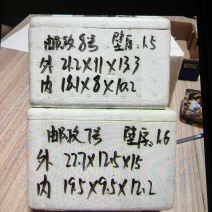 邮政8号 壁厚1.5
外 21.2X11X13.3
内 18.1X8X10.2
邮政7号 壁厚1.6
外 22.7X12.5X15
内 19.5X9.5X12.2